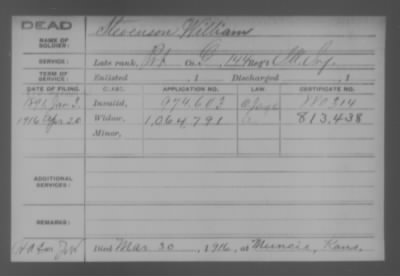 DEAD
Stevenson Williams
NAME OF SOLDIER:
SERVICE: Late rank, Pvt Co. G, 144 Reg't Ill. Inf.
TERM OF SERVICE: Enlisted , 1 Discharged , 1
DATE OF FILING. CLASS. APPLICATION NO. LAW. CERTIFICATE NO.
1891 Jan 3. Invalid, 974,603 880314
1916 Apr 20 Widow, 1,064,791 813,438
Minor,
ADDITIONAL SERVICES:
REMARKS:
Died Mar 30, 1916, at Muncie, Kans.